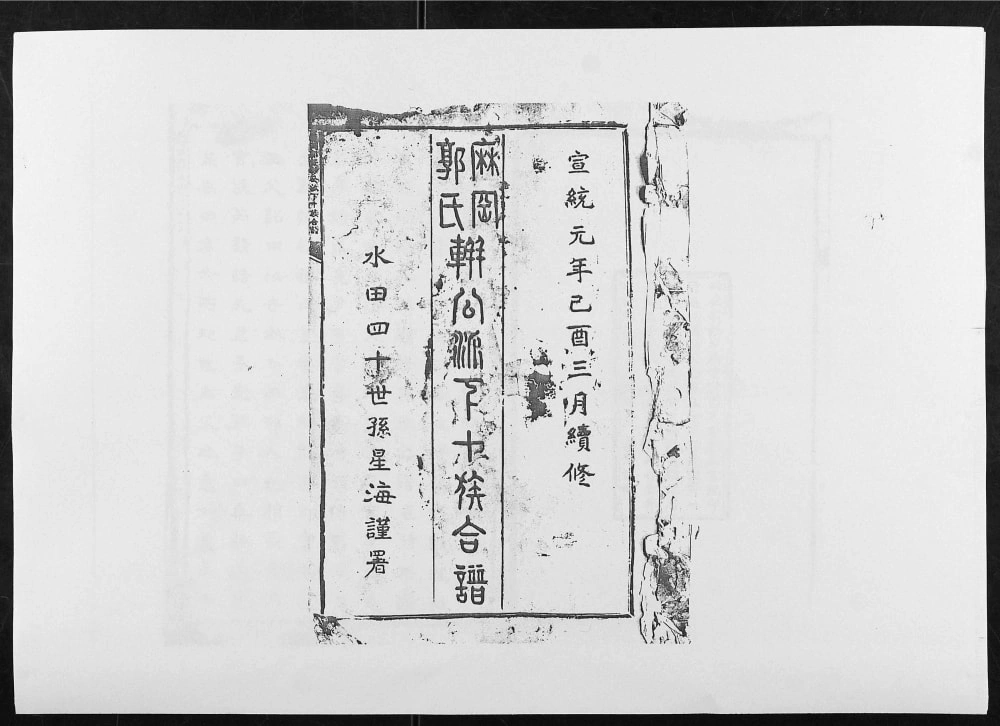 宣統元年己酉三月續修
麻岡
郭氏
輧公派下十族合譜
水田四十世孫星海謹署